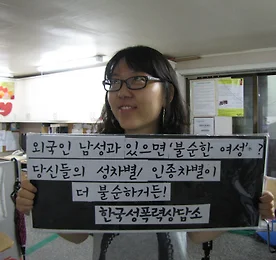 외국인 남성과 있으면 '불순한 여성'?
당신들의 성차별/인종차별이
더 불순하거든!
한국성폭력상담소